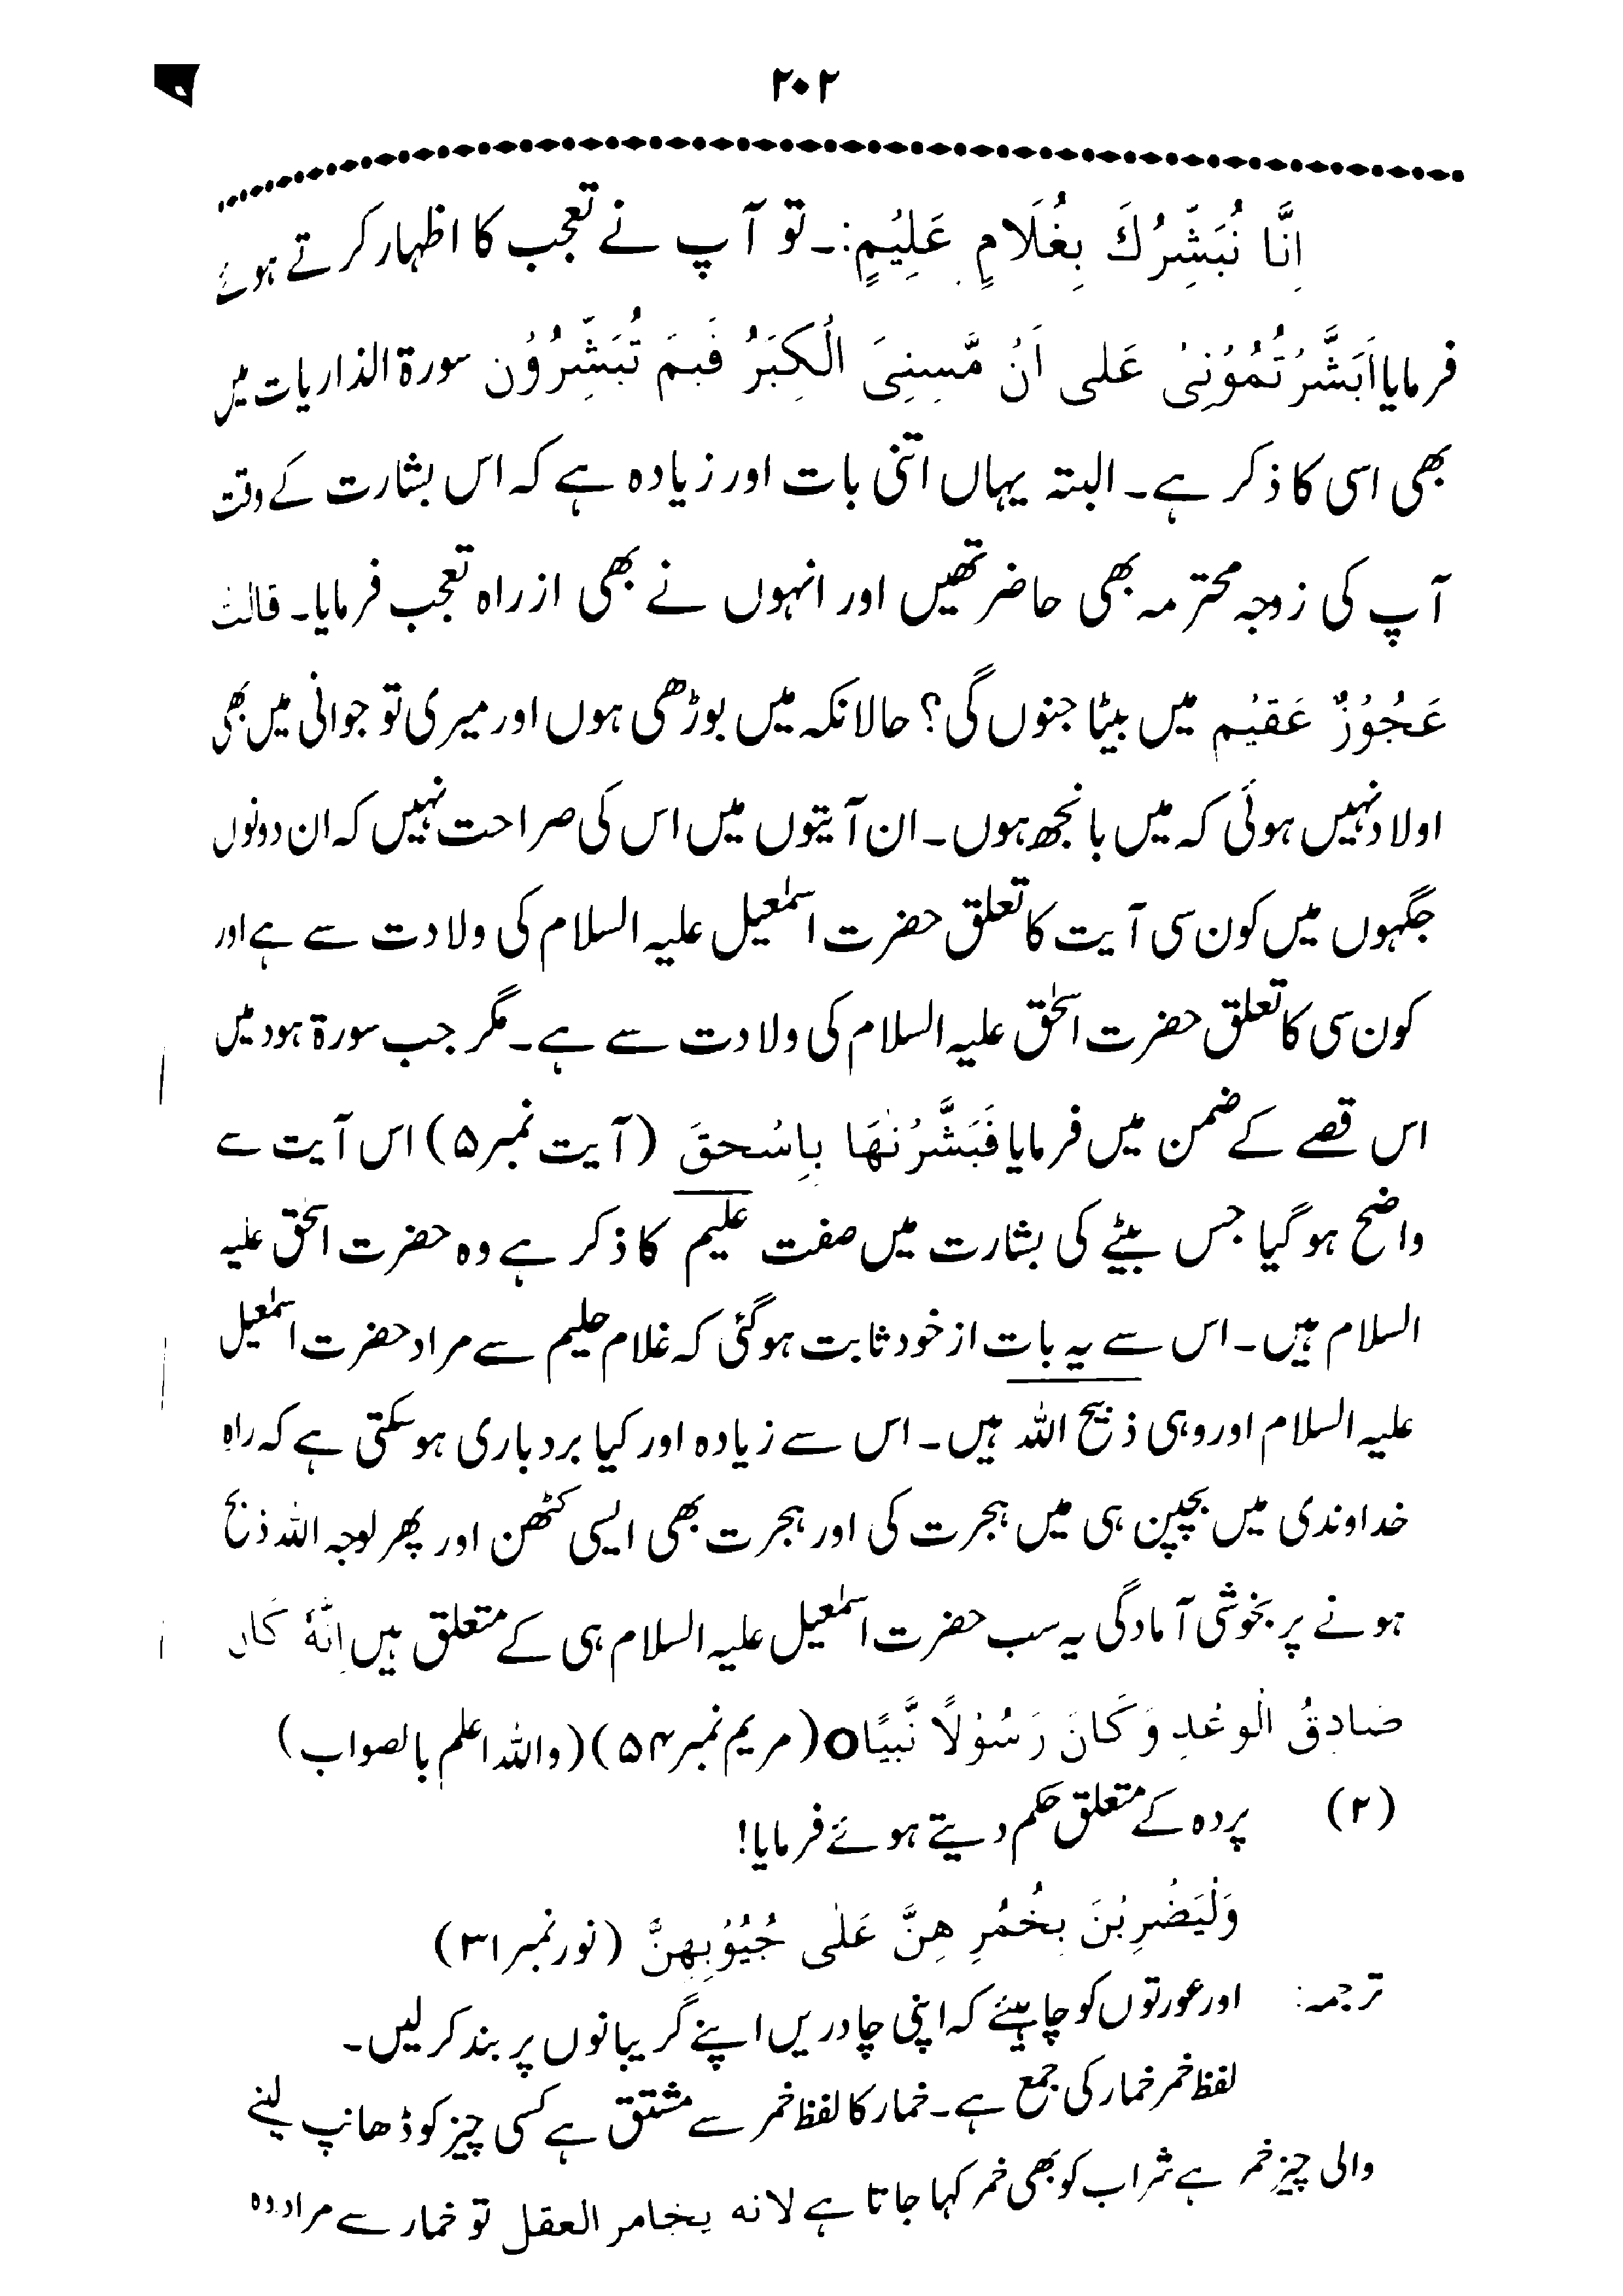 ۲۰۲
اِنَّا نُبَشِّرُكَ بِغُلَامٍ عَلِيْمٍ:۔ تو آپ نے تعجب کا اظہار کرتے ہوئے
فرمایا اَبَشَّرْتُمُوْنِیْ عَلی اَنْ مَّسِنِیَ الْكِبَرُ فَبِمَ تُبَشِّرُوْن سورۃ الذاریات میں
بھی اسی کا ذکر ہے۔ البتہ یہاں اتنی بات اور زیادہ ہے کہ اس بشارت کے وقت
آپ کی زوجہ محترمہ بھی حاضر تھیں اور انہوں نے بھی ازراہ تعجب فرمایا۔ قالت
عَجُوْزٌ عَقِيْم میں بیٹا جنوں گی؟ حالانکہ میں بوڑھی ہوں اور میری تو جوانی میں بھی
اولاد نہیں ہوئی کہ میں بانجھ ہوں۔ ان آیتوں میں اس کی صراحت نہیں کہ ان دونوں
جگہوں میں کون سی آیت کا تعلق حضرت اسمٰعیل علیہ السلام کی ولادت سے ہے اور
کون سی کا تعلق حضرت اسحٰق علیہ السلام کی ولادت سے ہے۔ مگر جب سورۃ ہود میں
اس قصے کے ضمن میں فرمایا فَبَشَّرْنٰهَا بِاِسْحٰقَ (آیت نمبر ۵) اس آیت سے
واضح ہو گیا جس بیٹے کی بشارت میں صفت علیم کا ذکر ہے وہ حضرت اسحٰق علیہ
السلام ہیں۔ اس سے یہ بات از خود ثابت ہو گئی کہ غلام حلیم سے مراد حضرت اسمٰعیل
علیہ السلام اور وہی ذبیح اللہ ہیں۔ اس سے زیادہ اور کیا بردباری ہو سکتی ہے کہ راہِ
خداوندی میں بچپن ہی میں ہجرت کی اور ہجرت بھی ایسی کٹھن اور پھر لوجہ اللہ ذبح
ہونے پر بخوشی آمادگی یہ سب حضرت اسمٰعیل علیہ السلام ہی کے متعلق ہیں اِنَّهٗ كَان
صَادِقُ الْوَعْدِ وَ كَانَ رَسُوْلًا نَّبِيًّا O (مریم نمبر ۵۴) (واللہ اعلم بالصواب)
(۲) پردہ کے متعلق حکم دیتے ہوئے فرمایا!
وَلْيَضْرِبْنَ بِخُمُرِ هِنَّ عَلٰى جُيُوْبِهِنَّ (نور نمبر ۳۱)
ترجمہ: اور عورتوں کو چاہیئے کہ اپنی چادریں اپنے گریبانوں پر بند کر لیں۔
لفظ خمر خمار کی جمع ہے۔ خمار کا لفظ خمر سے مشتق ہے کسی چیز کو ڈھانپ لینے
والی چیز خمر ہے شراب کو بھی خمر کہا جاتا ہے لانه یخامر العقل تو خمار سے مراد وہ